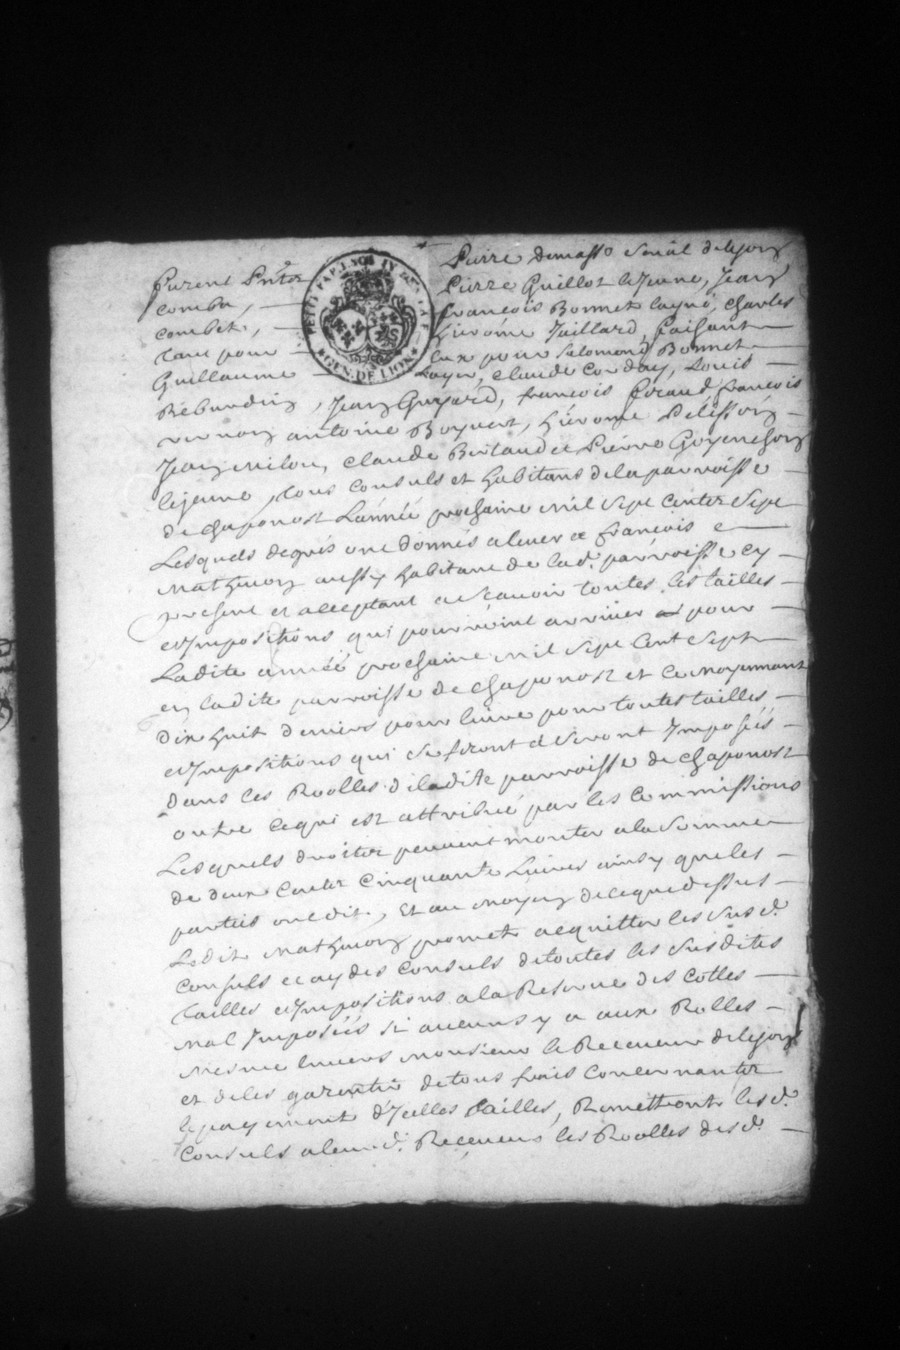 furent P̄nter Pierre demasso Senāl delyon
combe, Pierre Guillot le Jeune, Jean
combet, francois Bonnet layné, charles
tant pour hierome Jaillard faisant
Guillaume eux pour Salomond Bonnet
Layné, claude corday, Louis
PETIT PAP.
GEN. DE LION
Jean Guyard, francois francois
antoine Boyvert, hierome Pelisson
Jean Milon, claude Pierre Guyenchon
lejeune, tous consuls et habitans dela parroisse
de chaponost Lannée prochaine mil sept centz sept
Lesquels degrés ont donnés a lever a francois
Mathevon aussy habitant de lad. parroisse cy
present et acceptant ascavoir toutes les tailles
et Impositions qui pourroient arriver pour
Ladite année prochaine mil sept cent sept
en ladite parroisse de chaponost et ce moyennant
dix huit deniers pour livre pour toutes tailles
et Impositions qui se feront et seront Imposés
dans les Roolles deladite parroisse de chaponost
outre cequi est attribué par les Commissions
Lesquels droitz peuvent monter ala Somme
de deux centz cinquante Livres ainsy queles
parties ont dit, Et au moyen decequedessus
Ledit Mathevon promet acquitter les Sus d.
consuls et aydes consuls detoutes les Susdites
tailles et Impositions ala Reserve des cottes
mal Imposées si aucuns y a aux Rolles
mesme Envers Monsieur le Receveur delyon
et deles garentir detous frais concernantz
le payement d'Icelles tailles, Remettront les d.
Consuls aleurd. Receveur les Roolles desd.